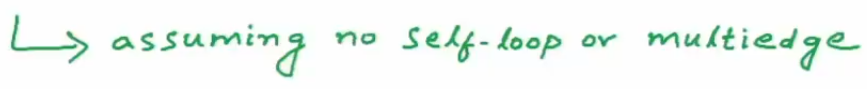 ↳ assuming no self-loop or multiedge